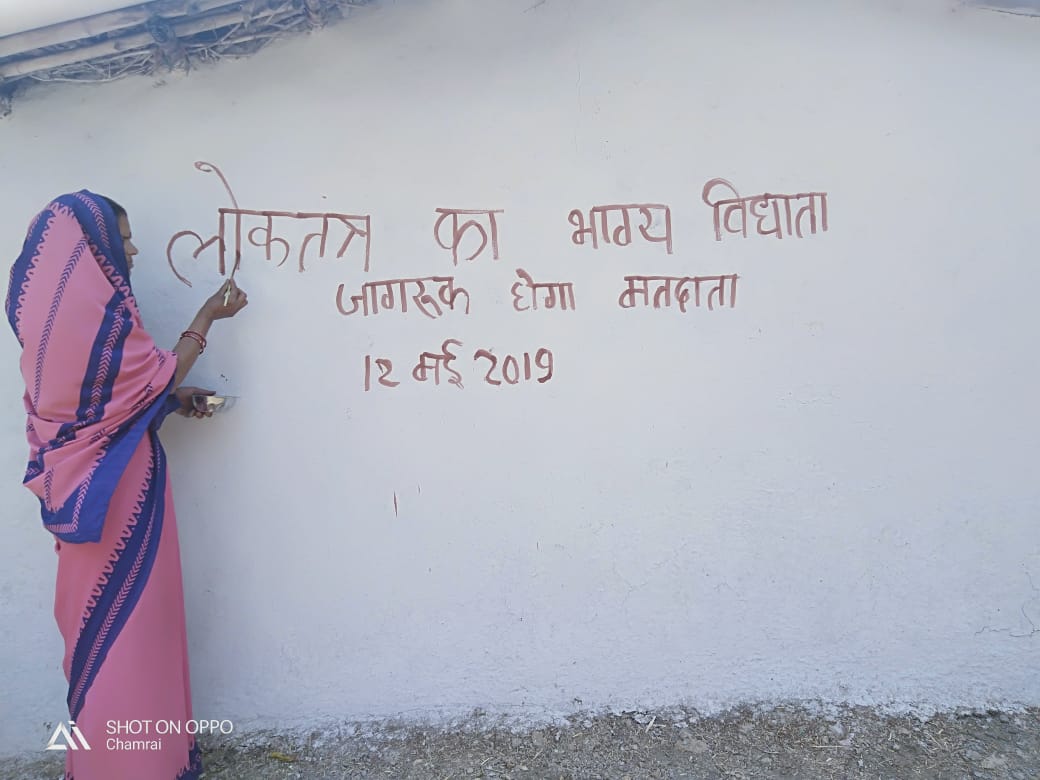 लोकतत्र का भाग्य विधाता
जागरूक होगा मतदाता
12 मई 2019
SHOT ON OPPO
Chamrai